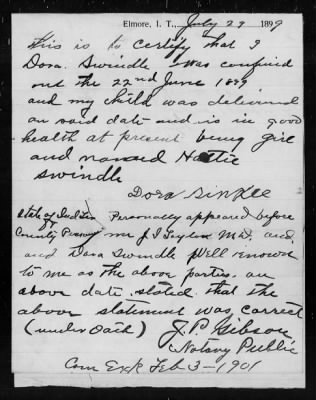 Elmore, I. T., July 29 1899
This is to certify that I
Dora Swindle was confined
on the 22nd June 1899
and my child was delivered
on said date and is in good
health at present being girl
and named Hattie
Swindle
Dora
State of Ind Ter Personally appeared before
County me J I Taylor M.D. and
and Dora Swindle Well known
to me as the above parties. on
above date stated that the
above statement was correct
(under oath) J. P. Gibson
Notary Public
Com Exp Feb 3-1901